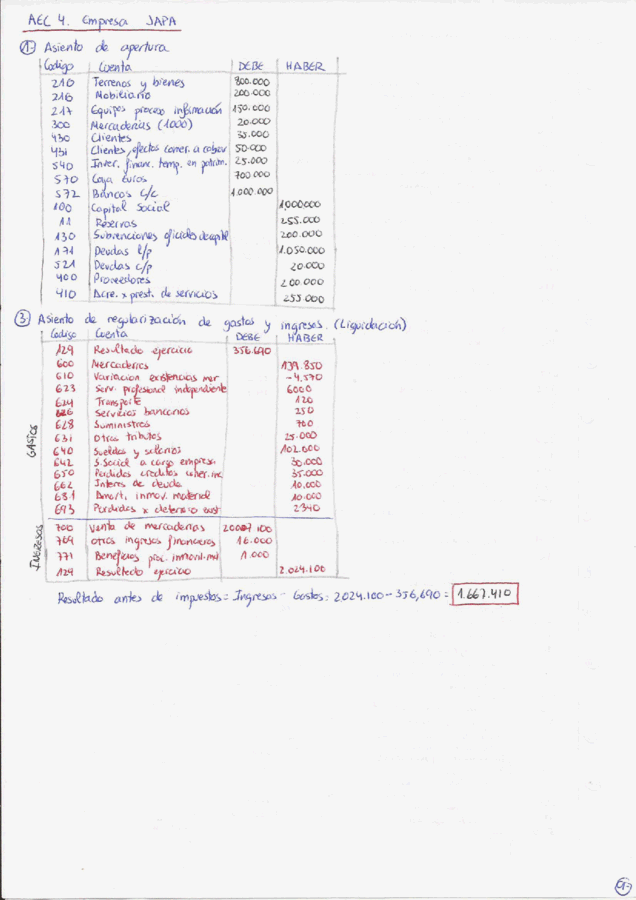 AEC 4. Empresa JAPA
1- Asiento de apertura
Codigo Cuenta DEBE HABER
210 Terrenos y bienes 800.000
216 Mobiliario 200.000
217 Equipos proceso información 150.000
300 Mercaderias (1000) 20.000
430 Clientes 35.000
431 Clientes, efectos comer. a cobrar 50.000
540 Inver. financ. temp. en patrim. 25.000
570 Caja euros 700.000
572 Bancos c/c 1.000.000
100 Capital Social 1000000
11 Reservas 255.000
130 Subvenciones oficiales de capital 200.000
171 Deudas l/p 1.050.000
521 Deudas c/p 20.000
400 Proveedores 200.000
410 Acre. x prest. de servicios 255.000
3 Asiento de regularización de gastos y ingresos. (Liquidacion)
Codigo Cuenta DEBE HABER
129 Resultado ejercicio 356.690
600 Mercaderias 139.850
610 Variacion existencias mer -4.570
623 Serv. profesional independiente 6000
624 Transporte 120
626 Servicios bancarios 250
628 Suministros 700
631 Otros tributos 25.000
640 Sueldos y salarios 102.000
642 S.Social a cargo empresa 30.000
650 Perdidas creditos comer.inc 35.000
662 Interes de deuda 10.000
681 Amort. inmov. material 10.000
693 Perdidas x deterioro exist 2340
GASTOS
700 Venta de mercaderias 2007.100
769 otros ingresos financieros 16.000
771 Beneficios proc. inmovil. mat 1.000
129 Resultado ejercicio 2.024.100
INGRESOS
Resultado antes de impuestos = Ingresos - Gastos: 2.024.100 - 356,690 = 1.667.410
01-